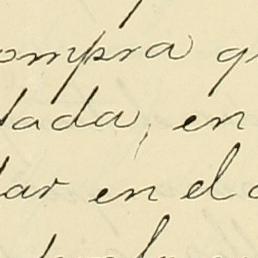 ompra q
lada, en
dar en el